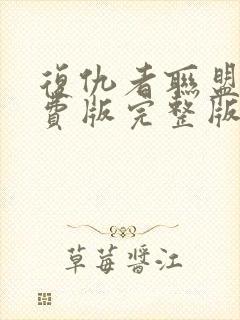 復仇者聯盟
費版完整版
草莓醬江